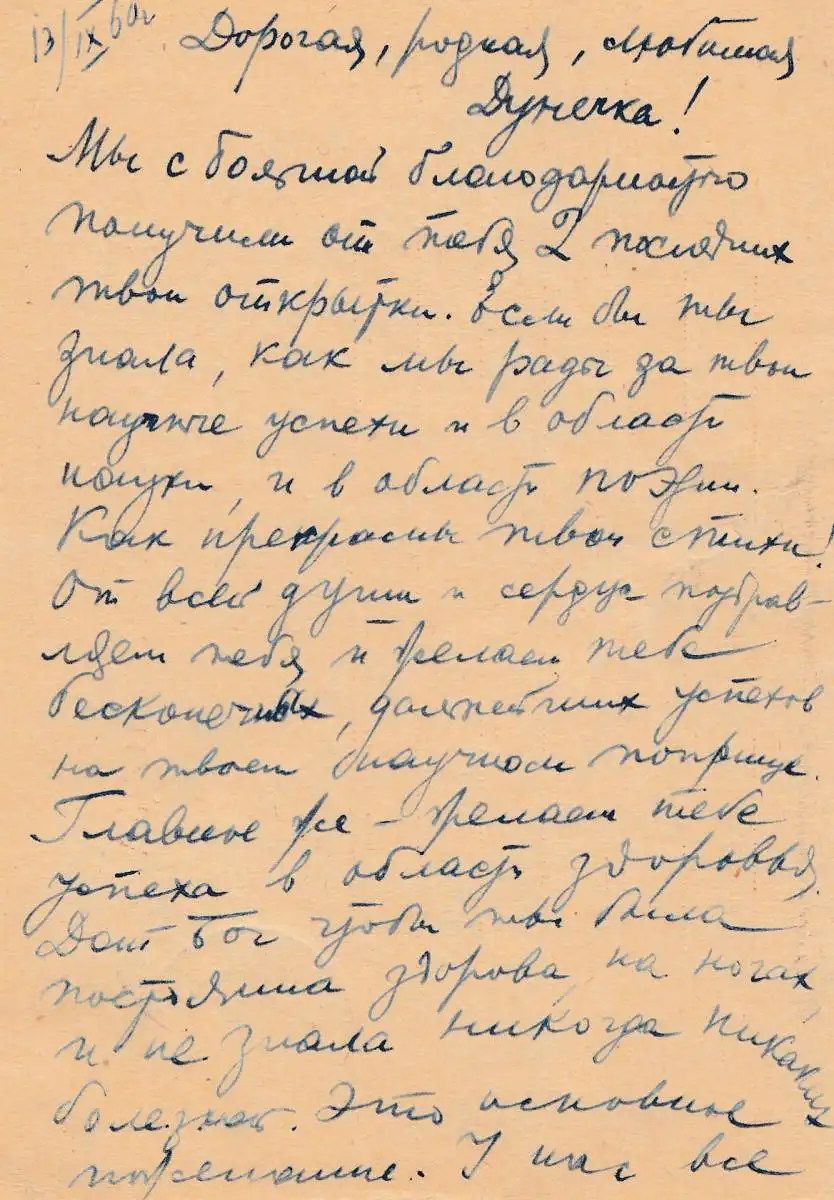 13/IX 60г
Дорогая, родная, любимая
Дунечка!
Мы с большой благодарностью
получили от тебя 2 последних
твои открытки. Если бы ты
знала, как мы рады за твои
научные успехи и в области
науки, и в области поэзии.
Как прекрасны твои стихи!
От всей души и сердца поздрав-
ляем тебя и желаем тебе
бесконечных, дальнейших успехов
на твоем научном поприще.
Главное же - желаем тебе
успеха в области здоровья.
Дай Бог чтобы ты была
постоянно здорова, на ногах,
и не знала никогда никаких
болезней. Это основное
пожелание. У нас все